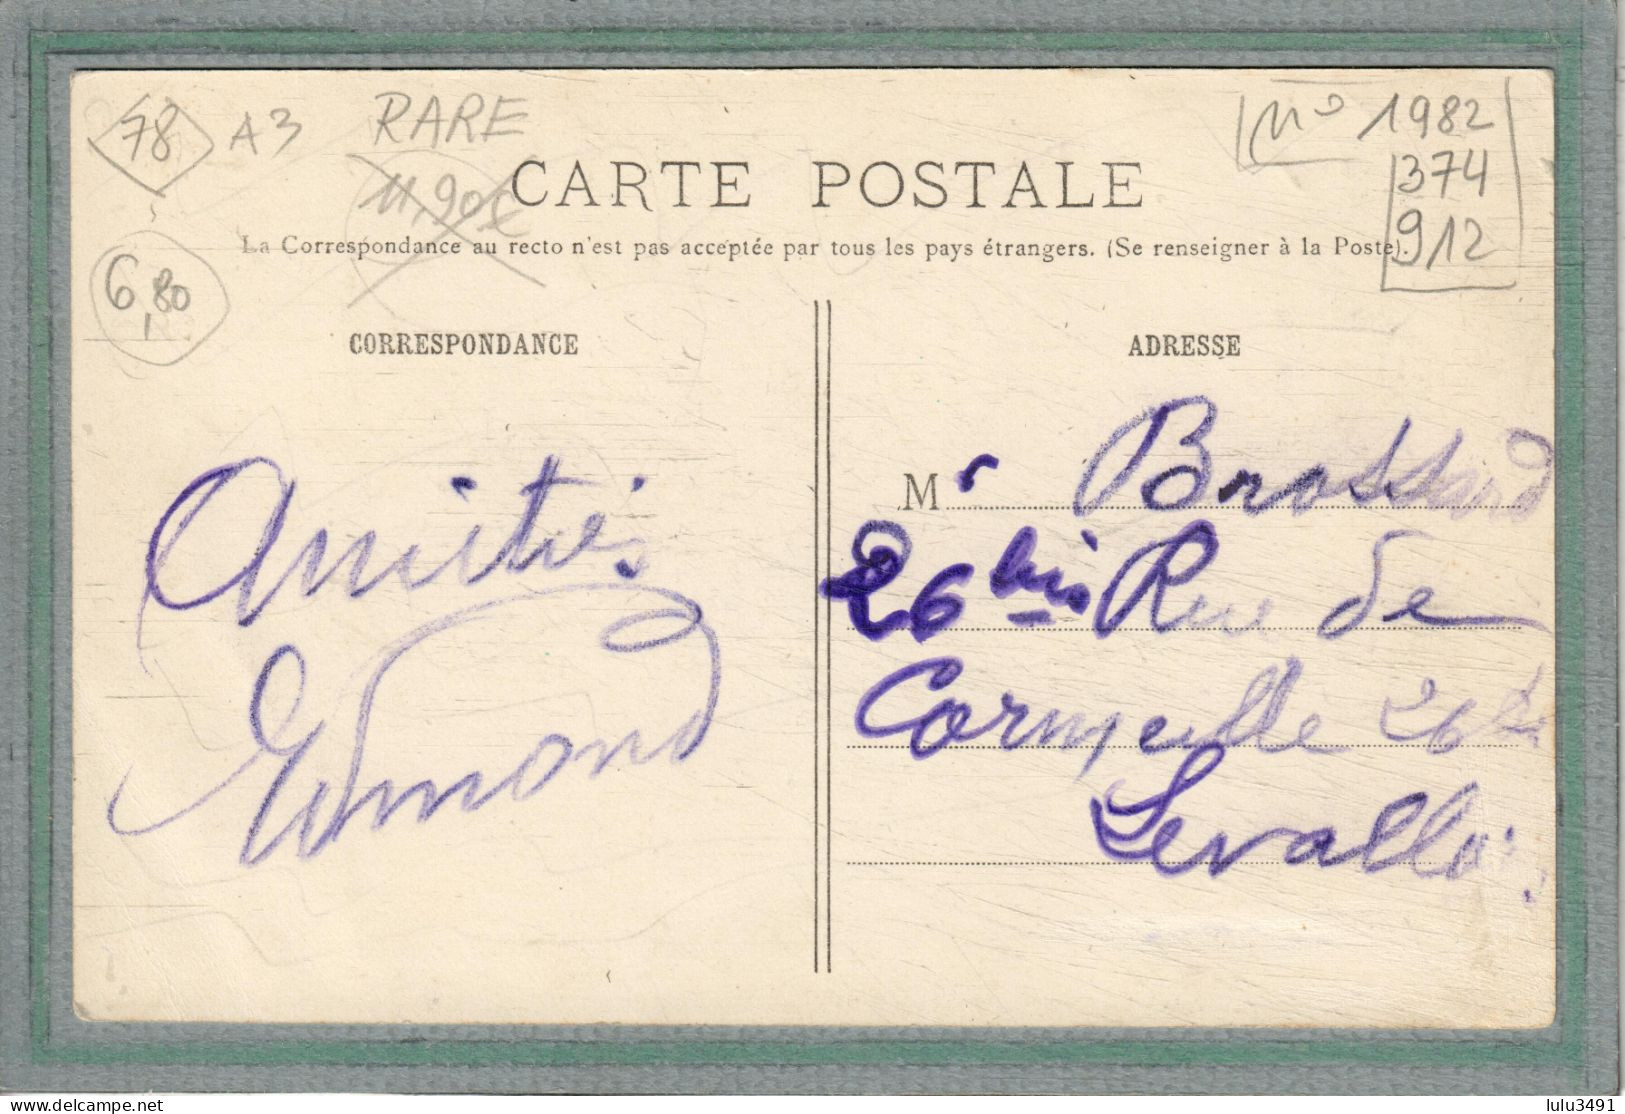 78 A3 RARE
11,90€
6,80
1982
374
912
CARTE POSTALE
La Correspondance au recto n'est pas acceptée par tous les pays étrangers. (Se renseigner à la Poste).
CORRESPONDANCE
Amitiés
Edmond
ADRESSE
Mr Brossard
26 bis Rue de
Cormeille 26 bis
Levallois
www.delcampe.net
lulu3491